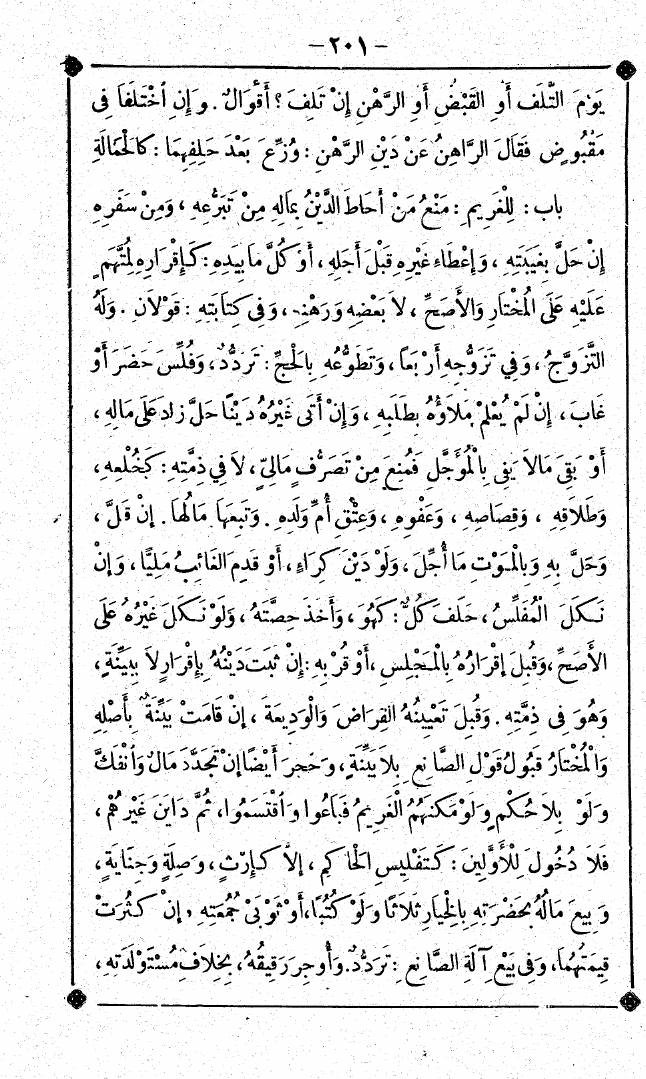 -٢٠١-
يَوْمَ التَّلَفِ أَوِ الْقَبْضِ أَوِ الرَّهْنِ إِنْ تَلِفَ ؟ أَقْوَالٌ . وَإِنِ اخْتَلَفَا فِى
مَقْبُوضٍ فَقَالَ الرَّاهِنُ عَنْ دَيْنِ الرَّهْنِ : وُزِّعَ بَعْدَ حَلِفِهِمَا : كَالْحَمَالَةِ
باب : لِلْغَرِيمِ : مَنْعُ مَنْ أَحَاطَ الدَّيْنُ بِمَالِهِ مِنْ تَبَرُّعِهِ ، وَمِنْ سَفَرِهِ
إِنْ حَلَّ بِغَيْبَتِهِ ، وَإِعْطَاءِ غَيْرِهِ قَبْلَ أَجَلِهِ ، أَوْ كُلَّ مَا بِيَدِهِ : كَإِقْرَارِهِ لِمُتَّهَمٍ
عَلَيْهِ عَلَى الْمُخْتَارِ وَالْأَصَحِّ ، لَا بَعْضِهِ وَرَهْنِهِ ، وَفِى كِتَابَتِهِ : قَوْلَانِ . وَلَهُ
التَّزَوُّجُ ، وَفِي تَزَوُّجِهِ أَرْبَعًا ، وَتَطَوُّعِهِ بِالْحَجِّ : تَرَدُّدٌ ، وَفُلِّسَ حَضَرَ أَوْ
غَابَ ، إِنْ لَمْ يُعْلَمْ مَلَاؤُهُ بِطَلَبِهِ ، وَإِنْ أَتَى غَيْرُهُ دَيْنًا حَلَّ زَادَ عَلَى مَالِهِ ،
أَوْ بَقِىَ مَالَا يَفِى بِالْمُؤَجَّلِ فَمُنِعَ مِنْ تَصَرُّفٍ مَالِىٍّ ، لَا فِى ذِمَّتِهِ : كَخُلْعِهِ ،
وَطَلَاقِهِ ، وَقِصَاصِهِ ، وَعَفْوِهِ ، وَعِتْقِ أُمِّ وَلَدِهِ . وَتَبِعَهَا مَالُهَا . إِنْ قَلَّ ،
وَحَلَّ بِهِ وَبِالْمَوْتِ مَا أُجِّلَ ، وَلَوْ دَيْنَ كِرَاءٍ ، أَوْ قَدِمَ الْغَائِبُ مَلِيًّا ، وَإِنْ
نَكَلَ الْمُفَلَّسُ ، حَلَفَ كُلٌّ : كَهُوَ ، وَأَخَذَ حِصَّتَهُ ، وَلَوْ نَكَلَ غَيْرُهُ عَلَى
الْأَصَحِّ ، وَقُبِلَ إِقْرَارُهُ بِالْمَجْلِسِ ، أَوْ قُرْبِهِ : إِنْ ثَبَتَ دَيْنُهُ بِإِقْرَارٍ لَا بِبَيِّنَةٍ ،
وَهُوَ فِى ذِمَّتِهِ . وَقُبِلَ تَعْيِينُهُ الْقِرَاضَ وَالْوَدِيعَةَ ، إِنْ قَامَتْ بَيِّنَةٌ بِأَصْلِهِ
وَالْمُخْتَارُ قَبُولُ قَوْلِ الصَّانِعِ بِلَا بَيِّنَةٍ ، وَحَجَرَ أَيْضًا إِنْ تَجَدَّدَ مَالٌ وَانْفَكَّ
وَلَوْ بِلَا حُكْمٍ وَلَوْ مَكَّنَهُمُ الْغَرِيمُ فَبَاعُوا وَاقْتَسَمُوا ، ثُمَّ دَايَنَ غَيْرَهُمْ ،
فَلَا دُخُولَ لِلْأَوَّلِينَ : كَتَفْلِيسِ الْحَاكِمِ ، إِلَّا كَإِرْثٍ ، وَصِلَةٍ وَجِنَايَةٍ ،
وَبِيعَ مَالُهُ بِحَضْرَتِهِ بِالْخِيَارِ ثَلَاثًا وَلَوْ كُتُبًا ، أَوْ ثَوْبَىْ جُمُعَتِهِ ، إِنْ كَثُرَتْ
قِيمَتُهُمَا ، وَفِى بَيْعِ آلَةِ الصَّانِعِ : تَرَدُّدٌ . وَأُوجِرَ رَقِيقُهُ ، بِخِلَافِ مُسْتَوْلَدَتِهِ ،